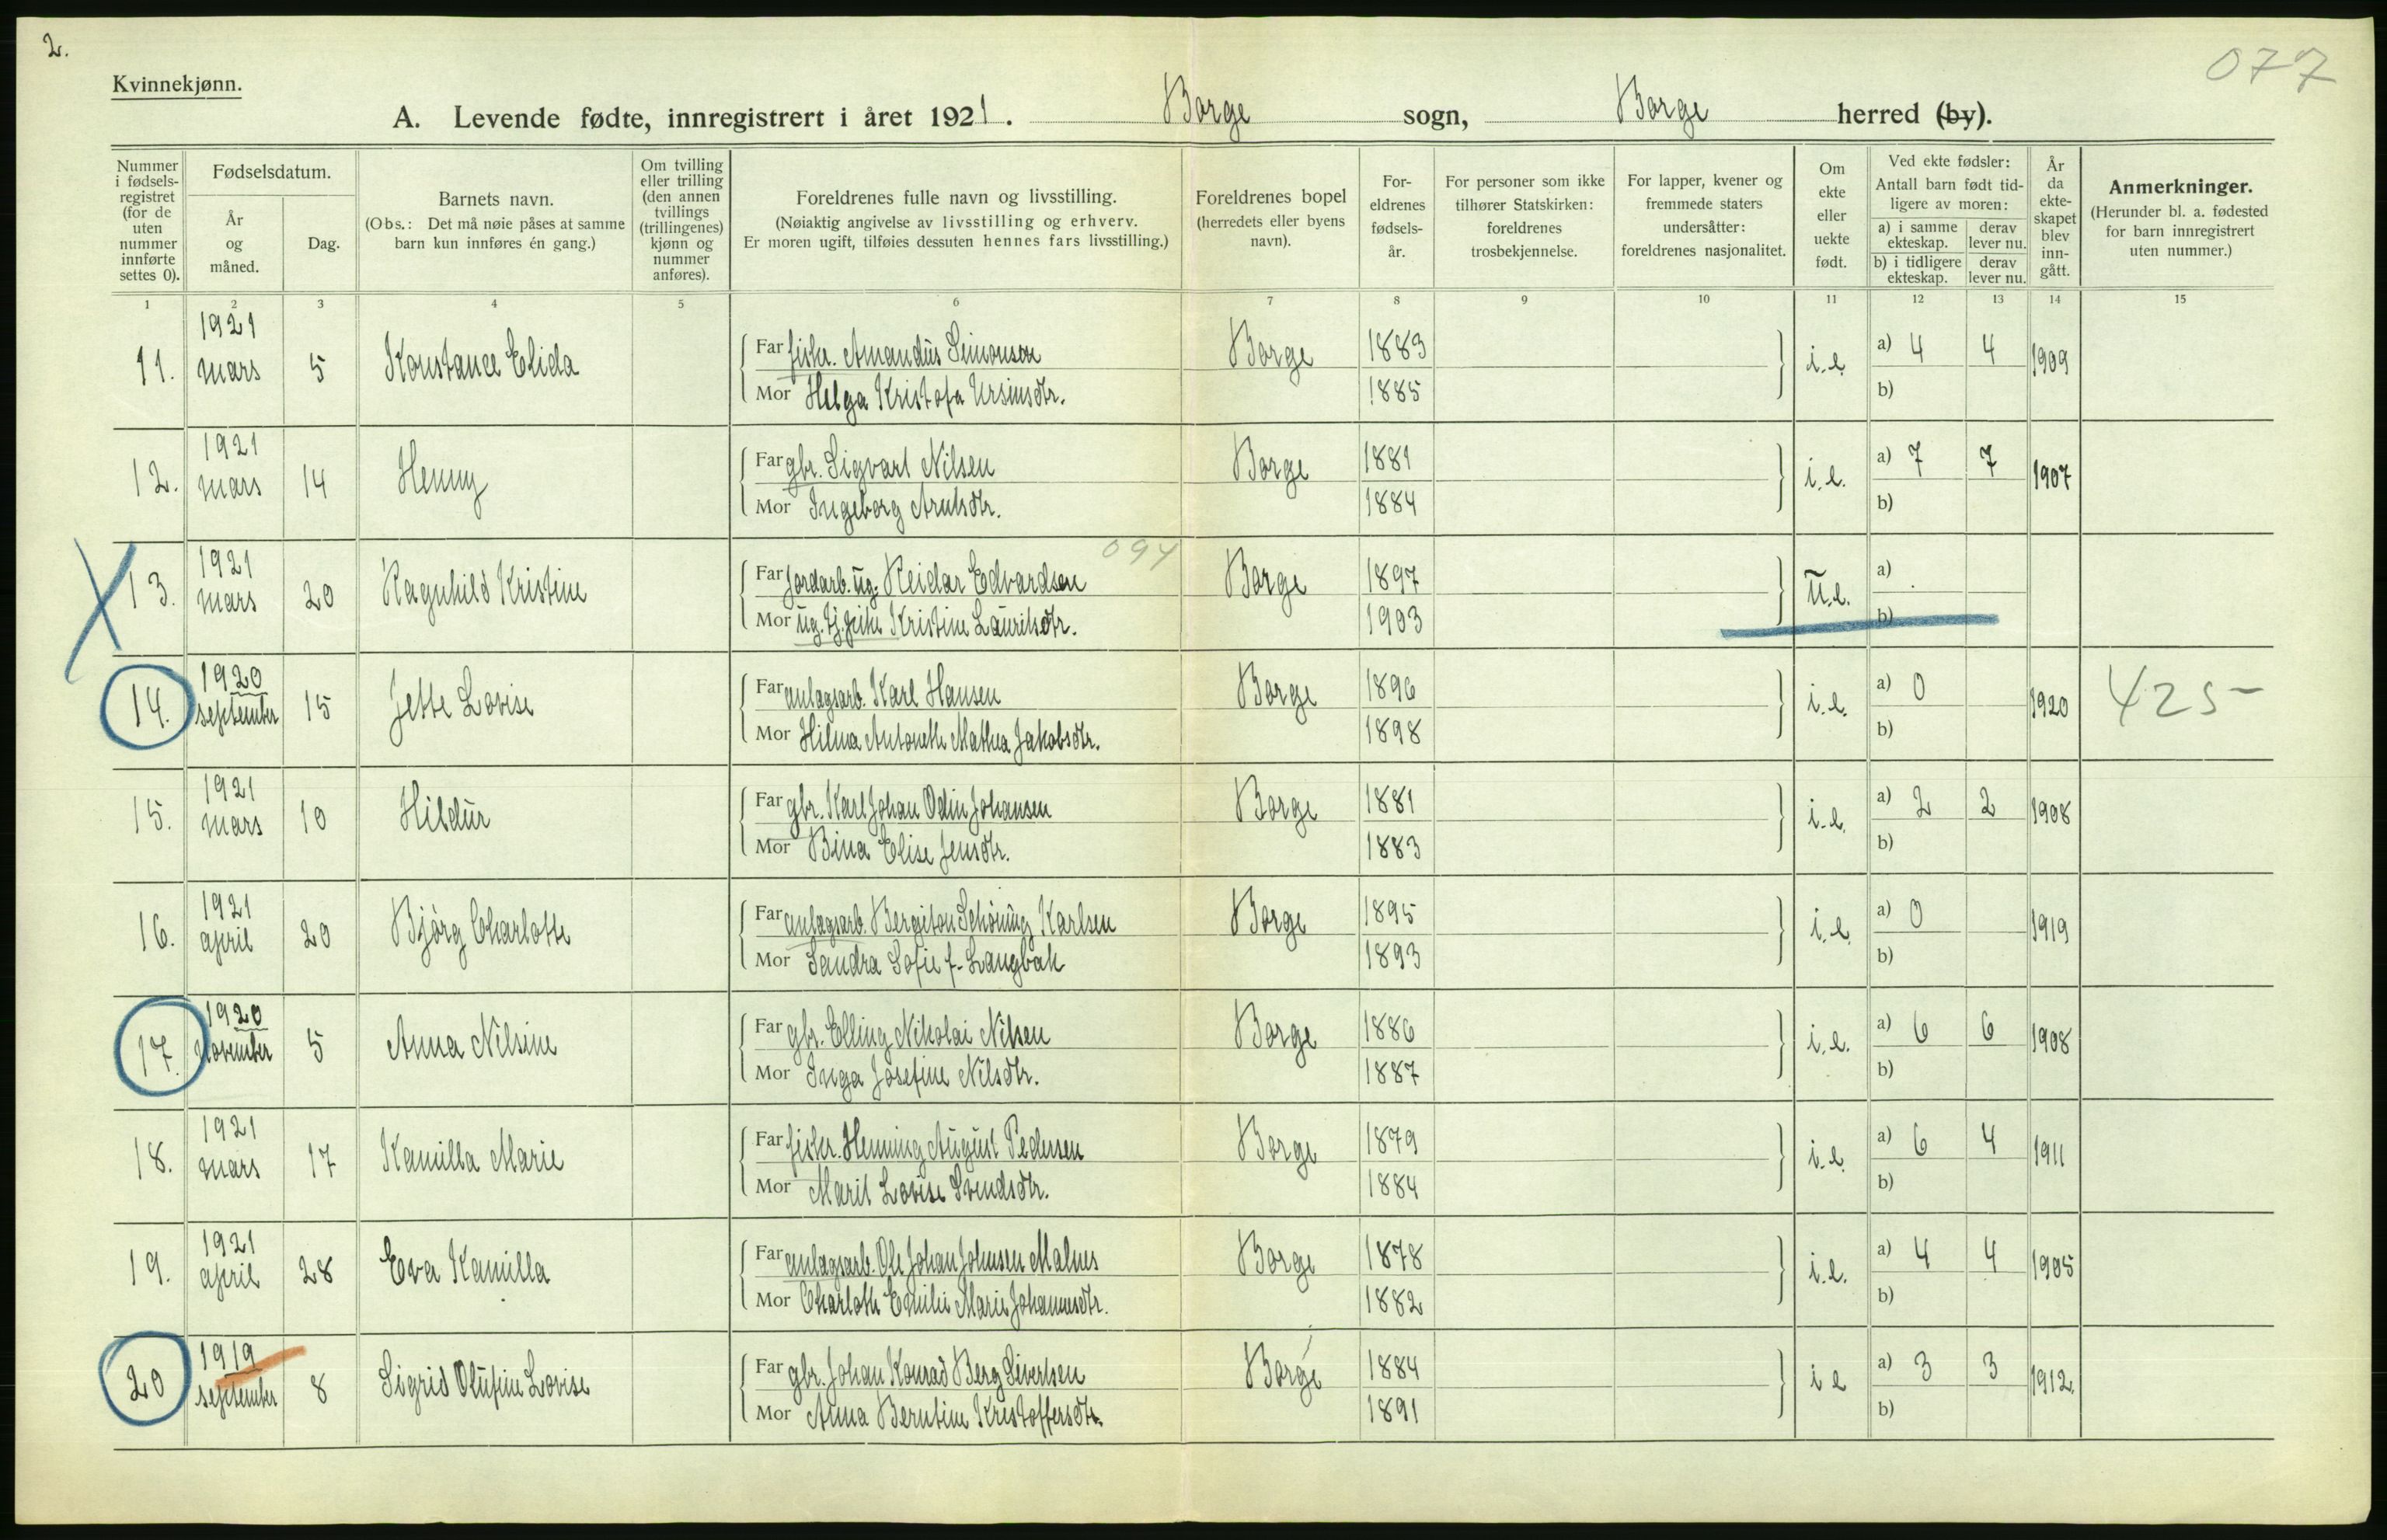 2.
077
Kvinnekjønn.
A. Levende fødte, innregistrert i året 1921. Borge sogn, Borge herred (by).
Nummer i fødsels-registret (for de uten nummer innførte settes 0).
Fødselsdatum.
År og måned.
Dag.
Barnets navn.
(Obs.: Det må nøie påses at samme barn kun innføres én gang.)
Om tvilling eller trilling (den annen tvillings (trillingenes) kjønn og nummer anføres).
Foreldrenes fulle navn og livsstilling.
(Nøiaktig angivelse av livsstilling og erhverv.
Er moren ugift, tilføies dessuten hennes fars livsstilling.)
Foreldrenes bopel
(herredets eller byens navn).
For-eldrenes fødsels-år.
For personer som ikke tilhører Statskirken: foreldrenes trosbekjennelse.
For lapper, kvener og fremmede staters undersåtter: foreldrenes nasjonalitet.
Om ekte eller uekte født.
Ved ekte fødsler:
Antall barn født tid-ligere av moren:
a) i samme ekteskap.
derav lever nu.
b) i tidligere ekteskap.
derav lever nu.
År da ekte-skapet blev inn-gått.
Anmerkninger.
(Herunder bl. a. fødested for barn innregistrert uten nummer.)
1 2 3 4 5 6 7 8 9 10 11 12 13 14 15
11. 1921 mars 5 Konstance Elida Far fisker. Amandus Simonsen Borge 1883 i.e. a) 4 4 1909
Mor Helga Kristofa Ursinsdtr. 1885 b)
12. 1921 mars 14 Henny Far gbr. Sigvart Nilsen Borge 1881 i.e. a) 7 7 1907
Mor Ingeborg Arntsdtr. 1884 b)
094
13. 1921 mars 20 Ragnhild Kristine Far jordarb. ug. Reidar Edvardsen Borge 1897 U.e. a)
Mor ug. tj. Kristine Lauritsdtr. 1903 b)
14. 1920 september 15 Jette Lovise Far anlagsarb. Karl Hansen Borge 1896 i.e. a) 0 1920 425-
Mor Hilma Antonette Mathea Jakobsdtr. 1898 b)
15. 1921 mars 10 Hildur Far gbr. Karl Johan Odin Johansen Borge 1881 i.e. a) 2 2 1908
Mor Bina Elise Jensdtr. 1883 b)
16. 1921 april 20 Bjørg Charlotte Far anlagsarb. Bergiton Schöning Karlsen Borge 1895 i.e. a) 0 1919
Mor Sandra Sofie f. Langbak 1893 b)
17. 1920 november 5 Anna Nilsine Far gbr. Elling Nikolai Nilsen Borge 1886 i.e. a) 6 6 1908
Mor Inga Josefine Nilsdtr. 1887 b)
18. 1921 mars 17 Kamilla Marie Far fisker. Henning August Pedersen Borge 1879 i.e. a) 6 4 1911
Mor Marit Lovise Svendsdtr. 1884 b)
19. 1921 april 28 Eva Kamilla Far anlagsarb. Ole Johan Johnsen Malnes Borge 1878 i.e. a) 4 4 1905
Mor Charlotte Emilie Marie Johannesdtr. 1882 b)
20 1919 september 8 Sigrid Olufine Lovise Far gbr. Johan Konrad Berg Sivertsen Borge 1884 i e a) 3 3 1912.
Mor Anna Berntine Kristoffersdtr. 1891 b)